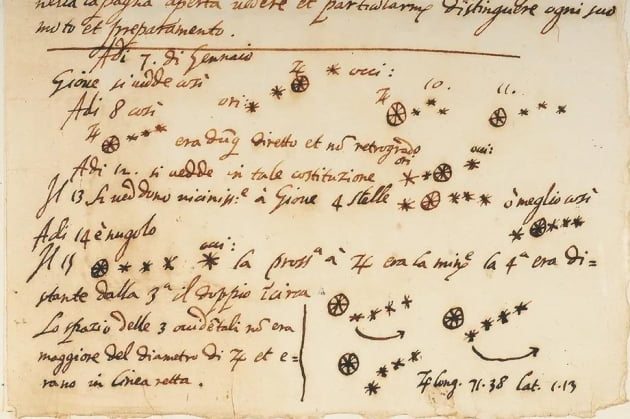 nella campagna aperta vedere et particularmẽ distinguere ogni suo
moto et preparamento.
Adi 7. di Gennaio
Gione si vedde così ♃ occi:
Adi 8 così ori: ♃ 10. 11.
♃ era dũq diretto et nõ retrogrado
Adi 12. si vedde in tale costituzione ori occi:
Il 13 si veddono vicinissᵉ à Gioue 4 stelle ò meglio così
Adi 14 è nugolo
Il 15 occi: la prossᵃ à ♃ era la minᵉ la 4ᵃ era di=
stante dalla 3ᵃ il doppio ĩcirca
Lo spazio delle 3 occidẽtali nõ era
maggiore del diametro di ♃ et e=
rano in linea retta.
♃ long. 71.38 lat. 1.13